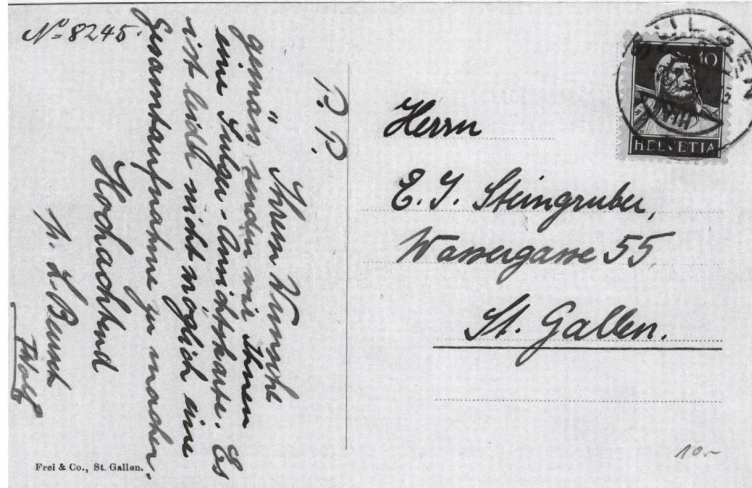 Nº 8245.
P. P.
Ihrem Wunsche
gemäss senden wir Ihnen
eine Sulger-Ansichtskarte. Es
ist leider nicht möglich eine
Gesamtaufnahme zu machen.
Hochachtend
Frei & Co., St. Gallen.
10
HELVETIA
Herrn
E. J. Steingruber,
Wassergasse 55
St. Gallen.
10.-